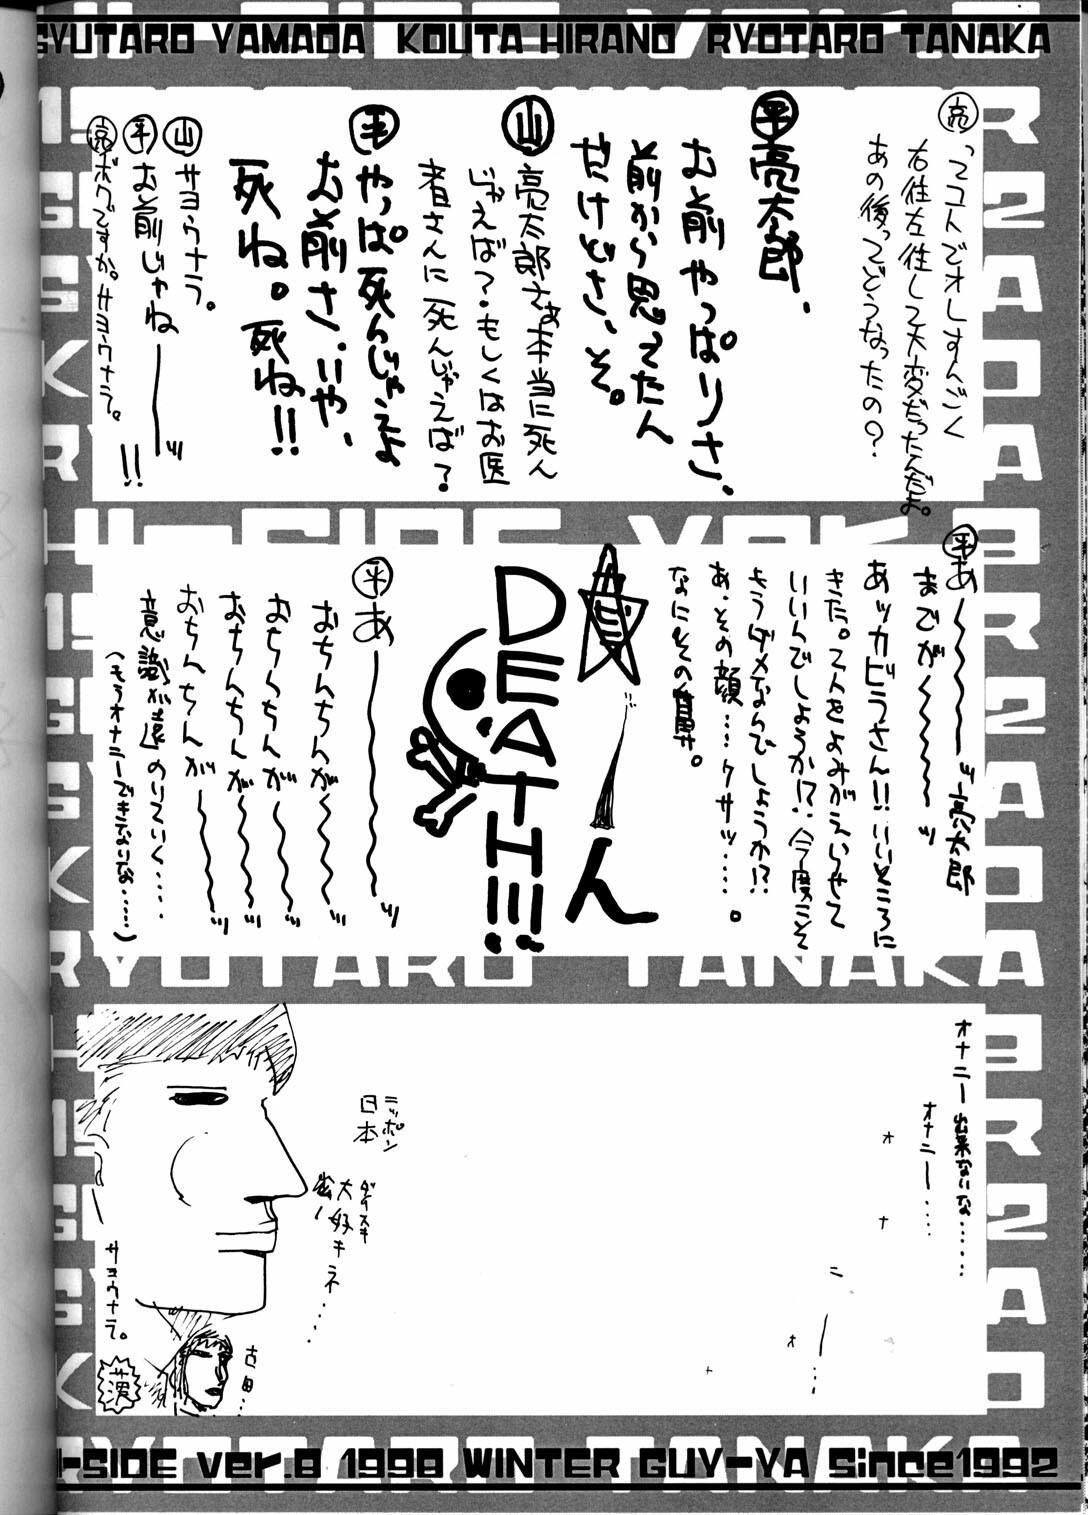 GYUTARO YAMADA KOUTA HIRANO RYOTARO TANAKA
亮 ってコトでオレすんごく
右往左往して大変だったんだよ。
あの後ってどうなったの?
平 亮太郎、
お前やっぱりさ、
前から思ってたん
だけどさ、そ。
山 亮太郎さぁ本当に死ん
じゃえば?もしくはお医
者さんに死んじゃえば?
平 やっぱ死んじゃえよ
お前さ、いや、
死ね。死ね!!
山 サヨウナラ。
平 お前じゃね———ッ!!
亮 ボクですか。サヨウナラ。
平 あ〜〜〜〜ッ亮太郎
までが〜〜〜〜ッ
あッカビラさん!!いいところに
きた。て人をよみがえらせて
いいんでしょうか!?今度こそ
もうダメなんでしょうか!?
あ、その顔…クサッ……。
なにその
ん
DEATH!!!
平 あ———〜〜〜〜ッ
おちんちんが〜〜〜〜ッ
おちんちんが〜〜〜〜ッ
おちんちんが〜〜〜〜ッ
おちんちんが〜〜〜〜ッ
意識が遠のいていく……
(もうオナニーできないな……)
オナニー出来ないな……
オナニー……
オ
ナ
ニ
ー…
ニッポン
日本
ダイスキ
大好キネ……
サヨウナラ。
吉田…
HI-SIDE ver.8 1998 WINTER GUY-YA Since1992